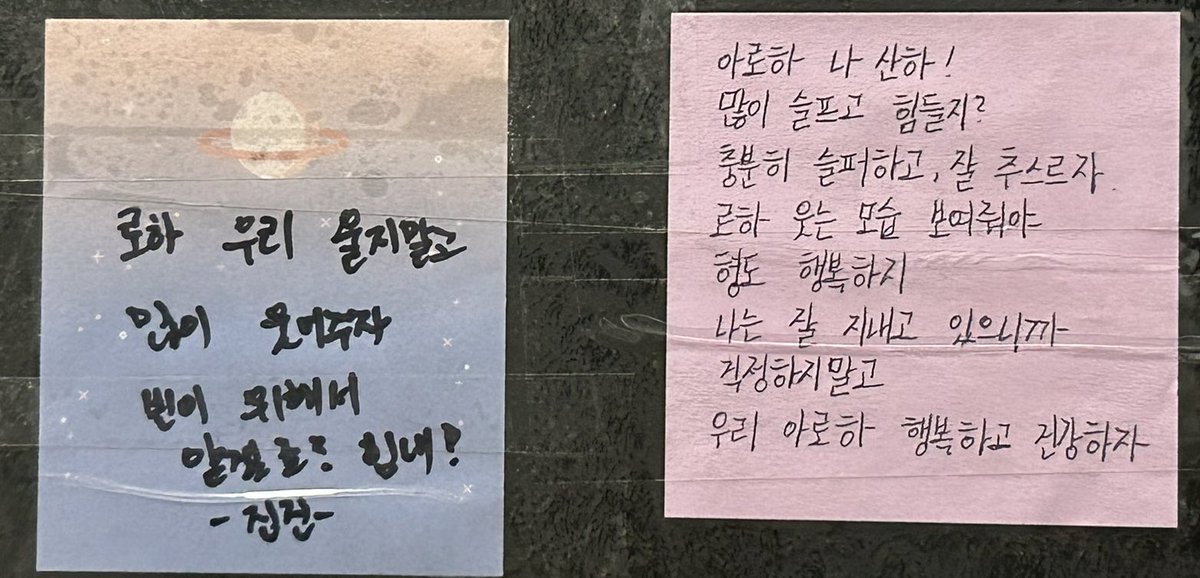 로하 우리 울지말고
많이 웃어주자
빈이 위해서
알겠죠? 힘내!
-진진-
아로하 나 산하!
많이 슬프고 힘들지?
충분히 슬퍼하고, 잘 추스르자.
로하 웃는 모습 보여줘야
형도 행복하지
나는 잘 지내고 있으니까
걱정하지말고
우리 아로하 행복하고 건강하자